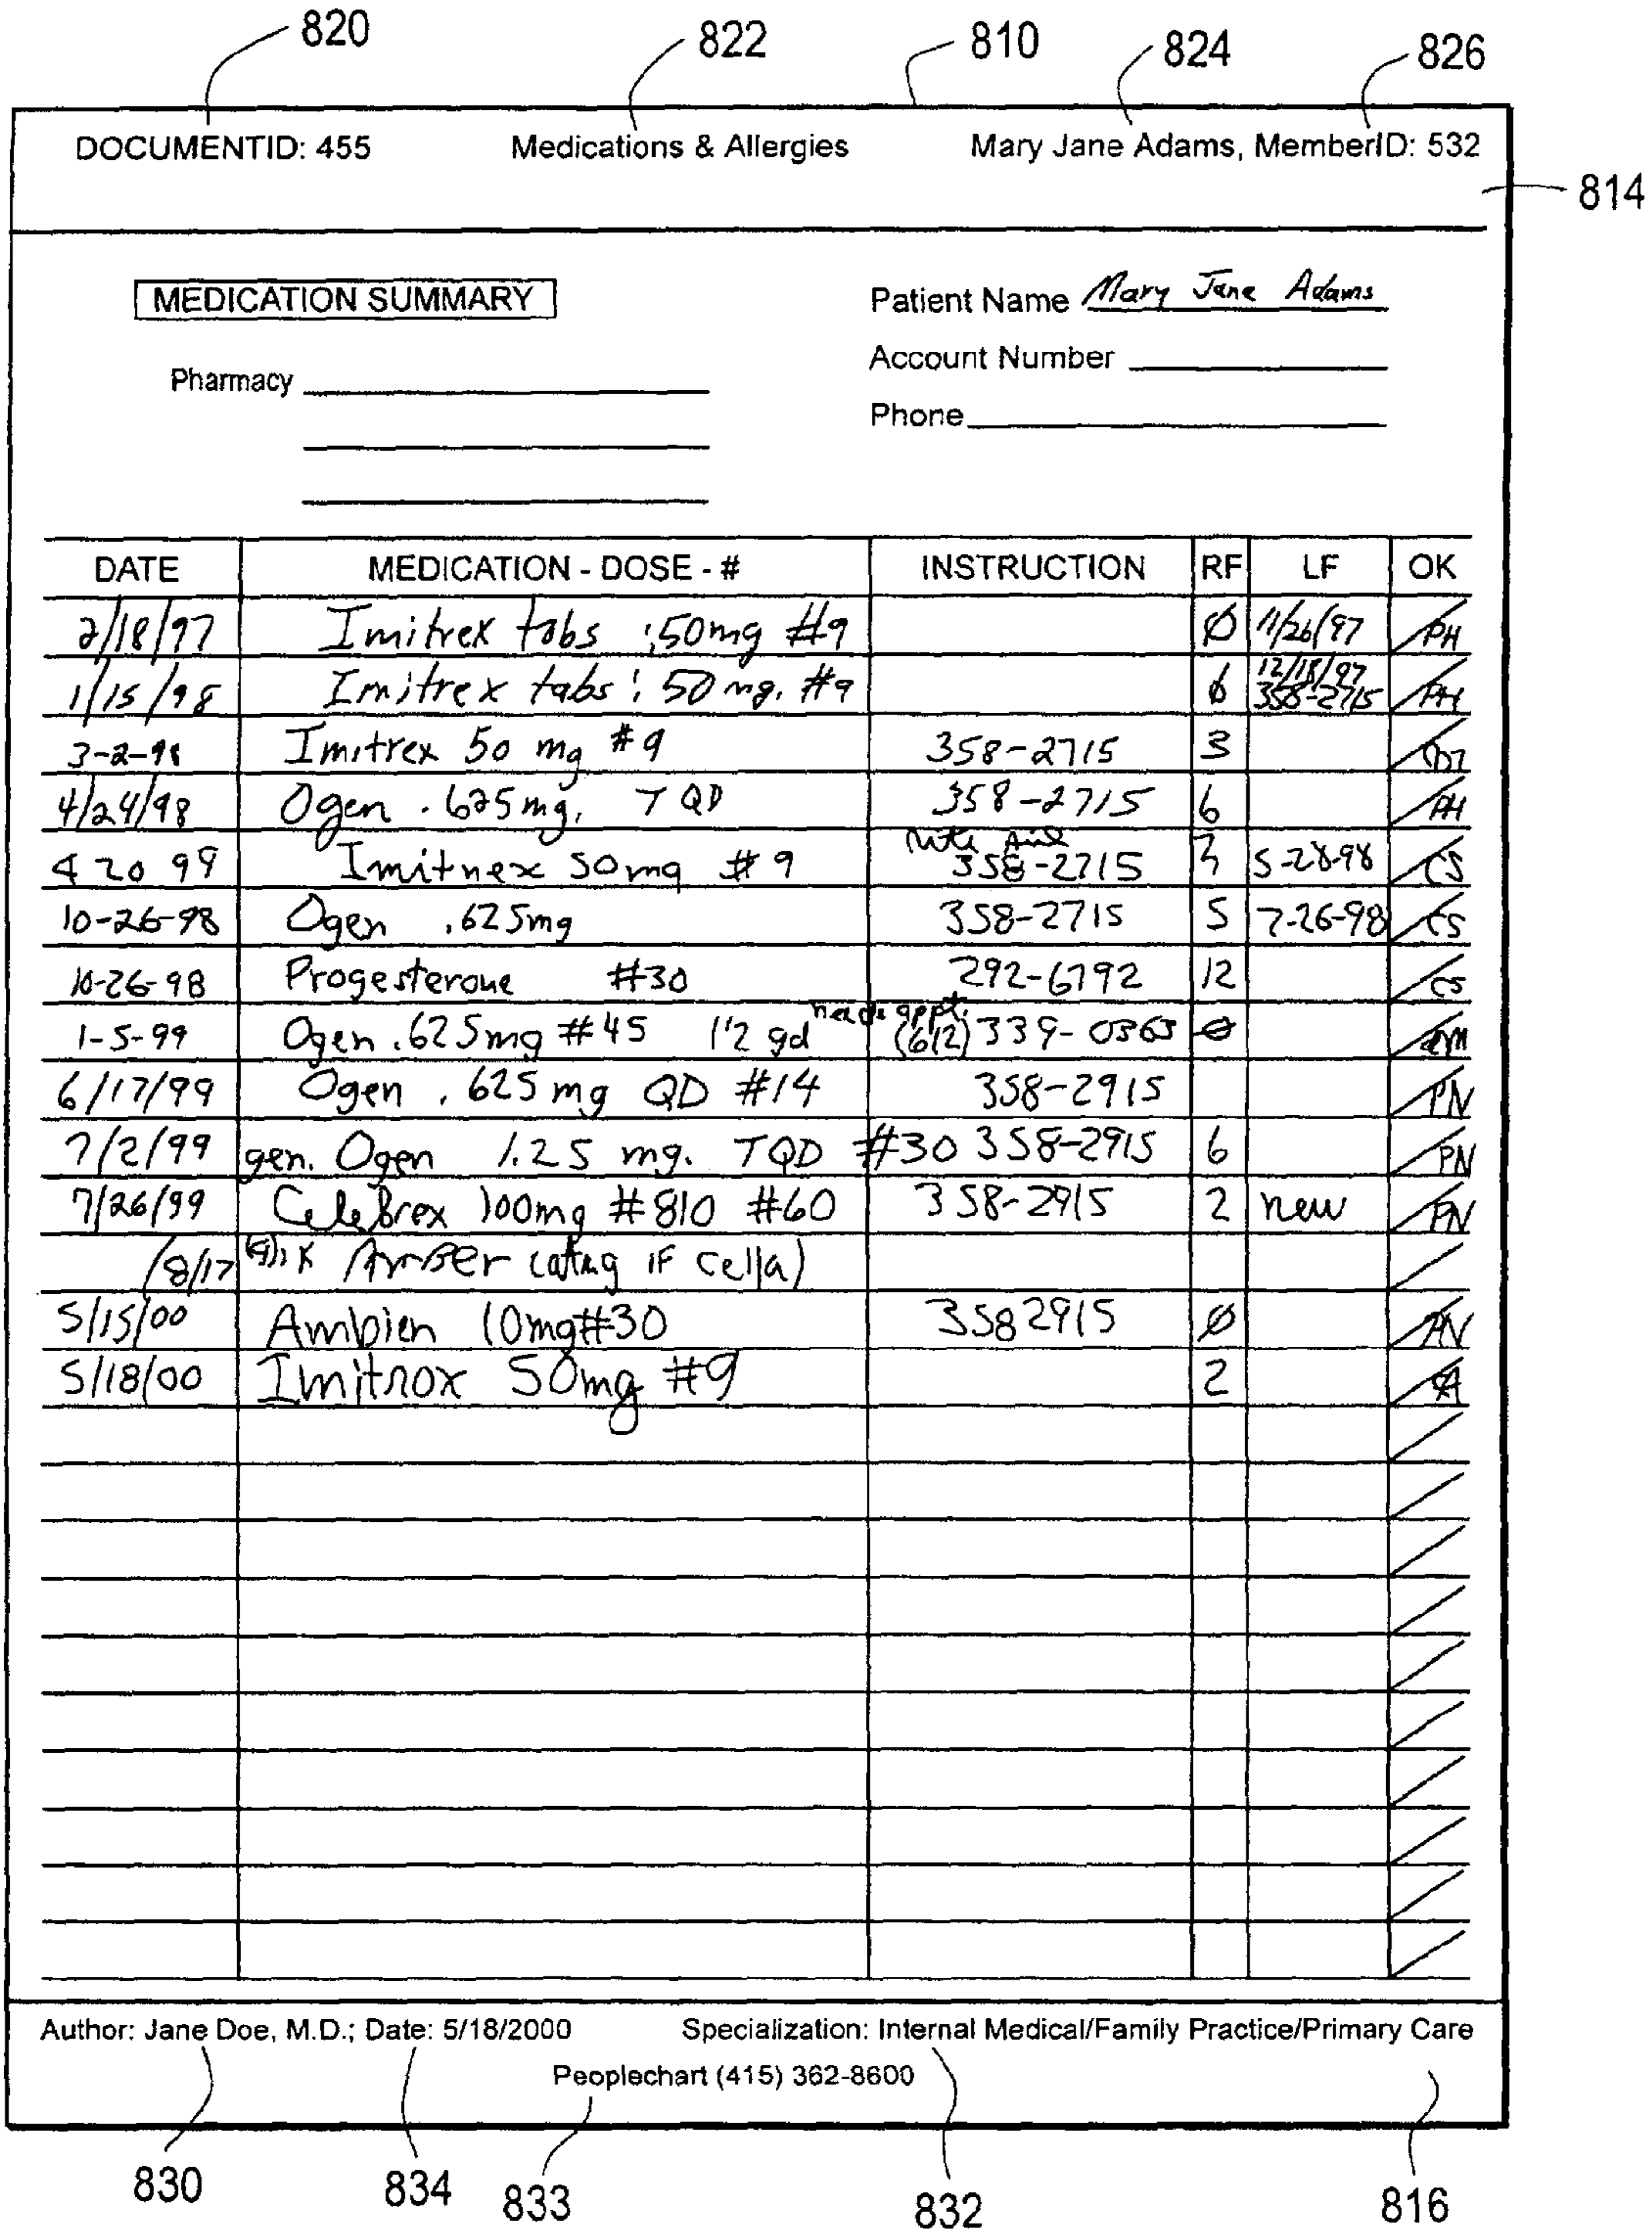 820 822 810 824 826
DOCUMENTID: 455 Medications & Allergies Mary Jane Adams, MemberID: 532
814
MEDICATION SUMMARY Patient Name Mary Jane Adams
Account Number
Pharmacy
Phone
DATE MEDICATION - DOSE - # INSTRUCTION RF LF OK
2/18/97 Imitrex tabs :50mg #9 Ø 11/26/97 PH
12/18/97
1/15/98 Imitrex tabs: 50 mg. #9 358-2715 PH
3-2-98 Imitrex 50 mg #9 358-2715 3
4/24/98 Ogen .625mg, T QD 358-2715 6 PH
Rite Aid
4 20 99 Imitnex 50mg #9 358-2715 3 5-28-98 CS
10-26-98 Ogen .625mg 358-2715 5 7-26-98 CS
10-26-98 Progesterone #30 292-6792 12 CS
needs appt.
1-5-99 Ogen .625mg #45 1'2 gd (612) 339-0363 Ø
6/17/99 Ogen .625 mg QD #14 358-2915 PN
7/2/99 gen. Ogen 1.25 mg. TQD #30 358-2915 6 PN
7/26/99 Celebrex 100mg #810 #60 358-2915 2 new PN
/8/17 IF cella)
5/15/00 Ambien 10mg#30 3582915 Ø
5/18/00 Imitnox 50mg #9 2
Author: Jane Doe, M.D.; Date: 5/18/2000 Specialization: Internal Medical/Family Practice/Primary Care
Peoplechart (415) 362-8600
830 834 833 832 816